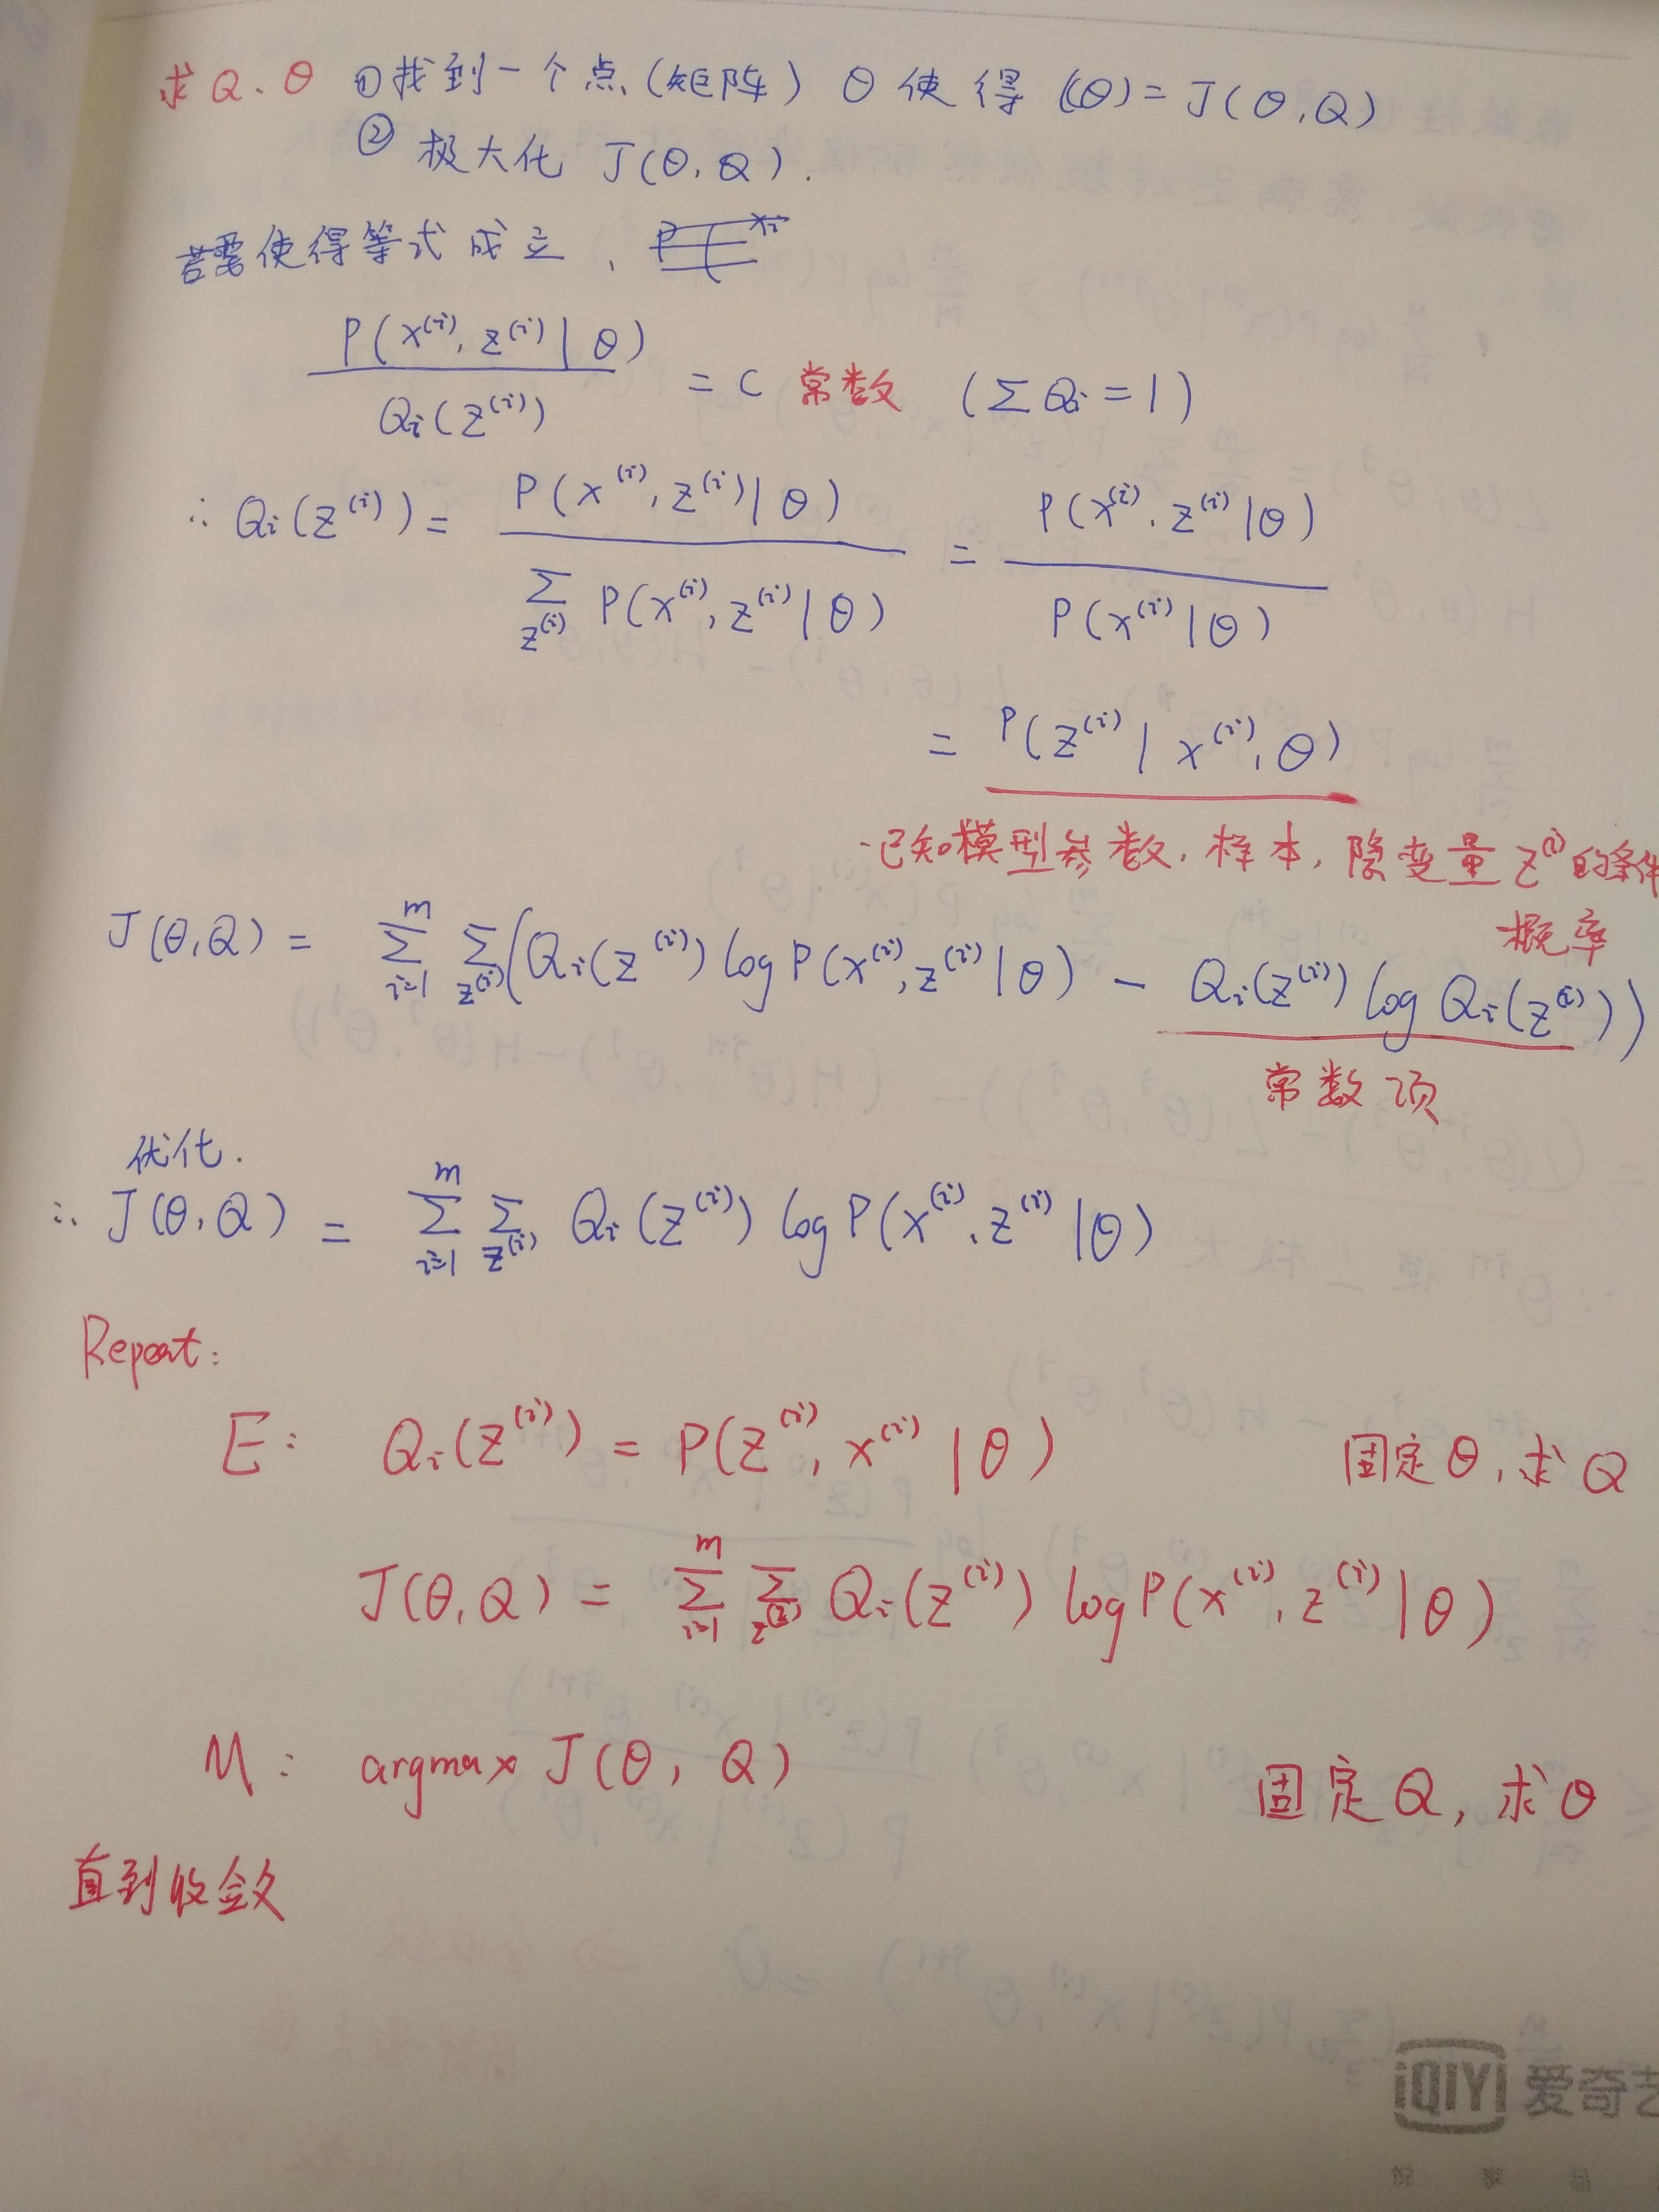 求Q、θ ①找到一个点(矩阵) θ 使得 l(θ) = J(θ,Q)
② 极大化 J(θ,Q).
若需使得等式成立,
P(x⁽ⁱ⁾, z⁽ⁱ⁾ | θ) / Qᵢ(z⁽ⁱ⁾) = c 常数 (∑Qᵢ = 1)
∴ Qᵢ(z⁽ⁱ⁾) = P(x⁽ⁱ⁾, z⁽ⁱ⁾ | θ) / ∑_{z⁽ⁱ⁾} P(x⁽ⁱ⁾, z⁽ⁱ⁾ | θ) = P(x⁽ⁱ⁾, z⁽ⁱ⁾ | θ) / P(x⁽ⁱ⁾ | θ)
= P(z⁽ⁱ⁾ | x⁽ⁱ⁾, θ)
已知模型参数, 样本, 隐变量 z⁽ⁱ⁾ 的条件
概率
J(θ,Q) = ∑_{i=1}^{m} ∑_{z⁽ⁱ⁾} (Qᵢ(z⁽ⁱ⁾) log P(x⁽ⁱ⁾, z⁽ⁱ⁾ | θ) - Qᵢ(z⁽ⁱ⁾) log Qᵢ(z⁽ⁱ⁾))
常数项
优化.
∴ J(θ,Q) = ∑_{i=1}^{m} ∑_{z⁽ⁱ⁾} Qᵢ(z⁽ⁱ⁾) log P(x⁽ⁱ⁾, z⁽ⁱ⁾ | θ)
Repeat:
E: Qᵢ(z⁽ⁱ⁾) = P(z⁽ⁱ⁾, x⁽ⁱ⁾ | θ) 固定θ, 求Q
J(θ,Q) = ∑_{i=1}^{m} ∑_{z⁽ⁱ⁾} Qᵢ(z⁽ⁱ⁾) log P(x⁽ⁱ⁾, z⁽ⁱ⁾ | θ)
M: argmax J(θ, Q) 固定Q, 求θ
直到收敛
iQIYI 爱奇艺